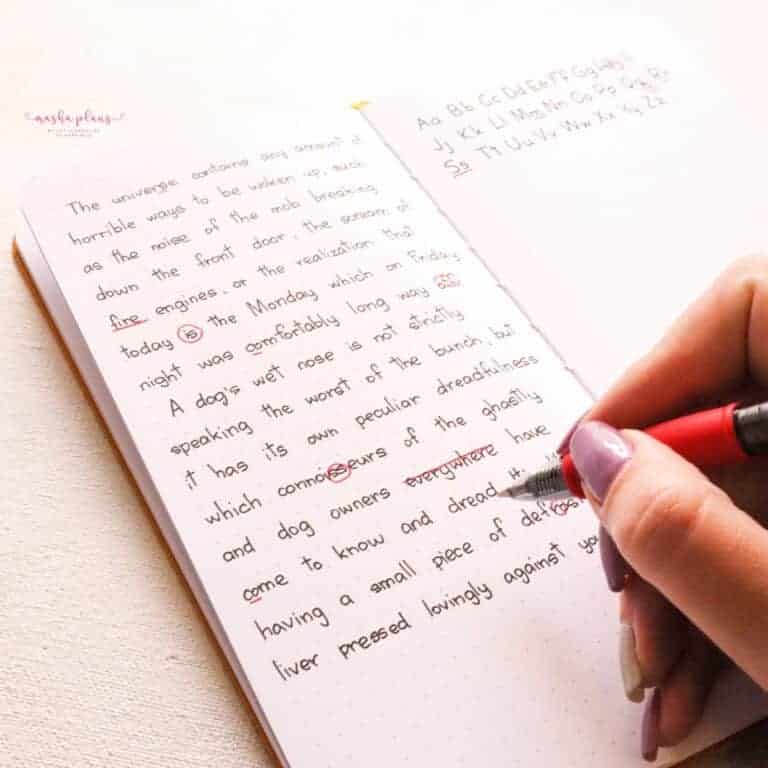 masha plans
The universe contains any amount of
horrible ways to be woken up, such
as the noise of the mob breaking
down the front door, the scream of
fire engines, or the realization that
today is the Monday which on Friday
night was comfortably long way
A dog's wet nose is not strictly
speaking the worst of the bunch, but
it has its own peculiar dreadfulness
which connoisseurs of the ghastly
and dog owners everywhere have
come to know and dread
having a small piece of
liver pressed lovingly against
Aa Bb Cc Dd Ee Ff Gg
Jj Kk Ll Mm Nn Oo Pp Qq Rr
Ss Tt Uu Vv Ww Xx Yy Zz